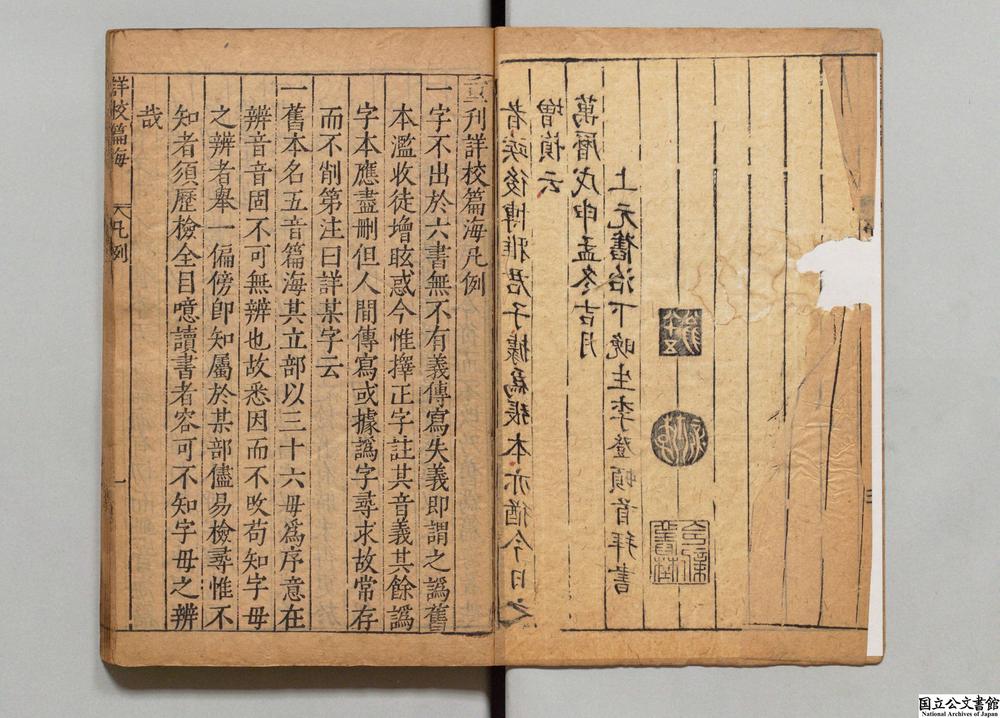 者俟後博雅君子據為張本亦猶今日之
增損云
萬曆戊申孟冬吉月
上元舊治下晚生李登頓首拜書
重刊詳校篇海凡例
一字不出於六書無不有義傳寫失義即謂之譌舊
本濫收徒增眩惑今惟擇正字註其音義其餘譌
字本應盡刪但人間傳寫或據譌字尋求故常存
而不削第注曰詳某字云
一舊本名五音篇海其立部以三十六母爲序意在
辨音音固不可無辨也故悉因而不改苟知字母
之辨者舉一偏傍卽知屬於某部儘易檢尋惟不
知者須歷檢全目噫讀書者容可不知字母之辨
哉
詳校篇海 凡例 一
国立公文書館
National Archives of Japan